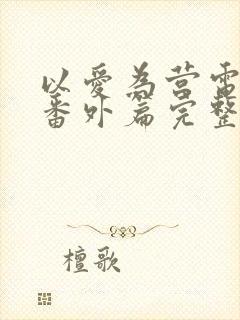 以爱为营电
番外篇完整
檀歌